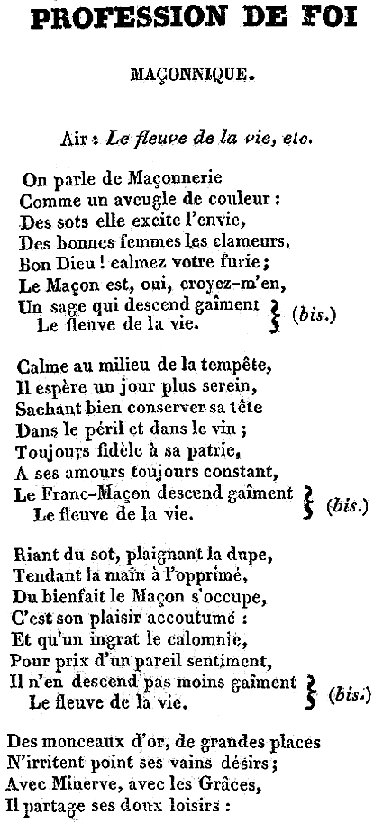 PROFESSION DE FOI
MAÇONNIQUE.
Air : Le fleuve de la vie, etc.
On parle de Maçonnerie
Comme un aveugle de couleur :
Des sots elle excite l'envie,
Des bonnes femmes les clameurs.
Bon Dieu ! calmez votre furie ;
Le Maçon est, oui, croyez-m'en,
Un sage qui descend gaîment
Le fleuve de la vie. (bis.)
Calme au milieu de la tempête,
Il espère un jour plus serein,
Sachant bien conserver sa tête
Dans le péril et dans le vin ;
Toujours fidèle à sa patrie,
A ses amours toujours constant,
Le Franc-Maçon descend gaîment
Le fleuve de la vie. (bis.)
Riant du sot, plaignant la dupe,
Tendant la main à l'opprimé,
Du bienfait le Maçon s'occupe,
C'est son plaisir accoutumé :
Et qu'un ingrat le calomnie,
Pour prix d'un pareil sentiment,
Il n'en descend pas moins gaîment
Le fleuve de la vie. (bis.)
Des monceaux d'or, de grandes places
N'irritent point ses vains désirs ;
Avec Minerve, avec les Grâces,
Il partage ses doux loisirs :